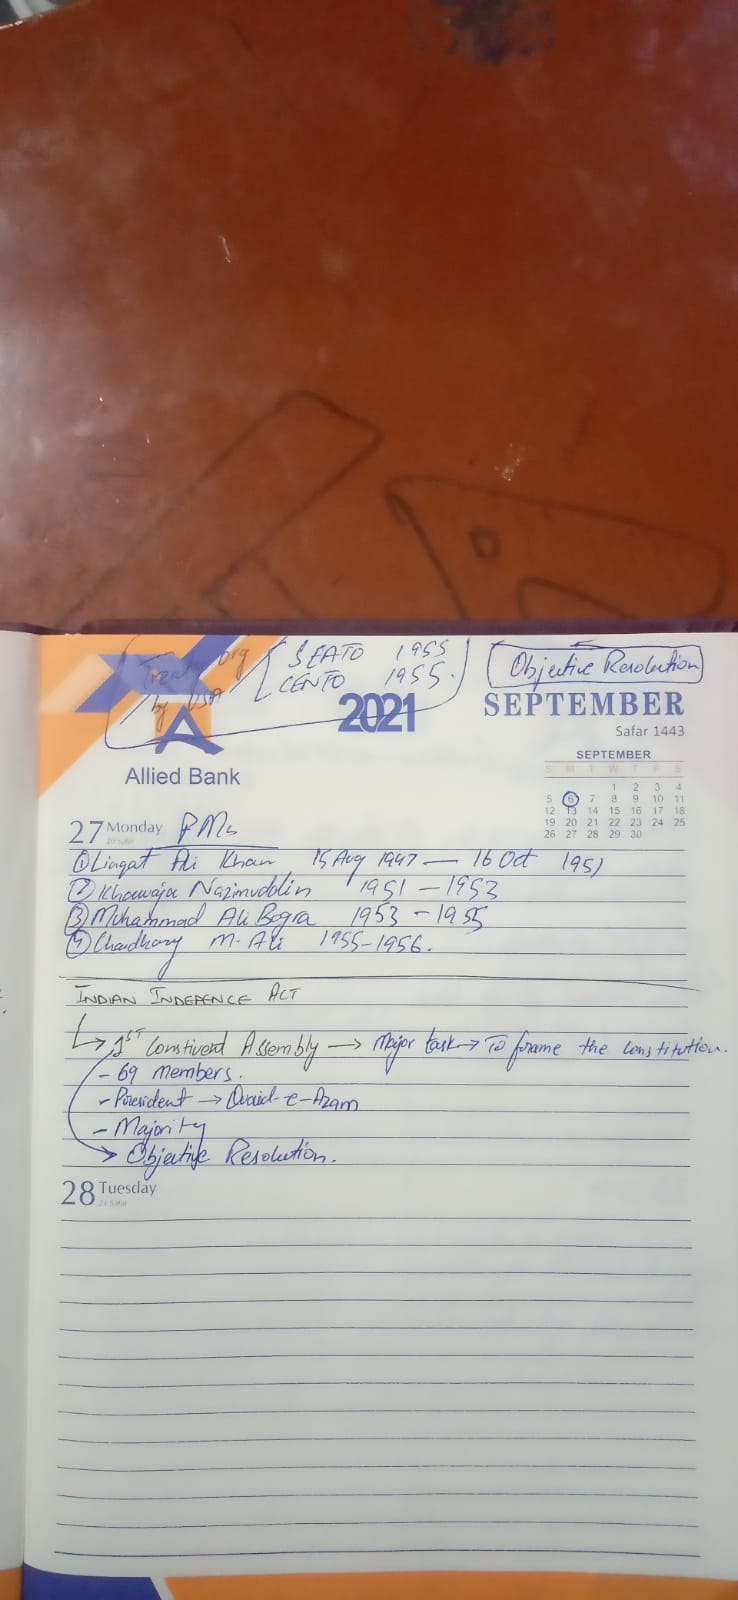 Treaty org by USA
SEATO 1955
CENTO 1955.
Objective Resolution
2021
SEPTEMBER
Safar 1443
Allied Bank
SEPTEMBER
S M T W T F S
1 2 3 4
5 6 7 8 9 10 11
12 13 14 15 16 17 18
19 20 21 22 23 24 25
26 27 28 29 30
27 Monday PMs
① Liaqat Ali Khan 15 Aug 1947 — 16 Oct 1951
② Khawaja Nazimuddin 1951 – 1953
③ Muhammad Ali Bogra 1953 – 1955
④ Chaudhary M. Ali 1955–1956.
INDIAN INDEPENCE ACT
→ 1ST Constivent Assembly → Major task → To frame the constitution.
- 69 members.
- President → Quaid-e-Azam
- Majority
→ Objective Resolution.
28 Tuesday
21 Safar